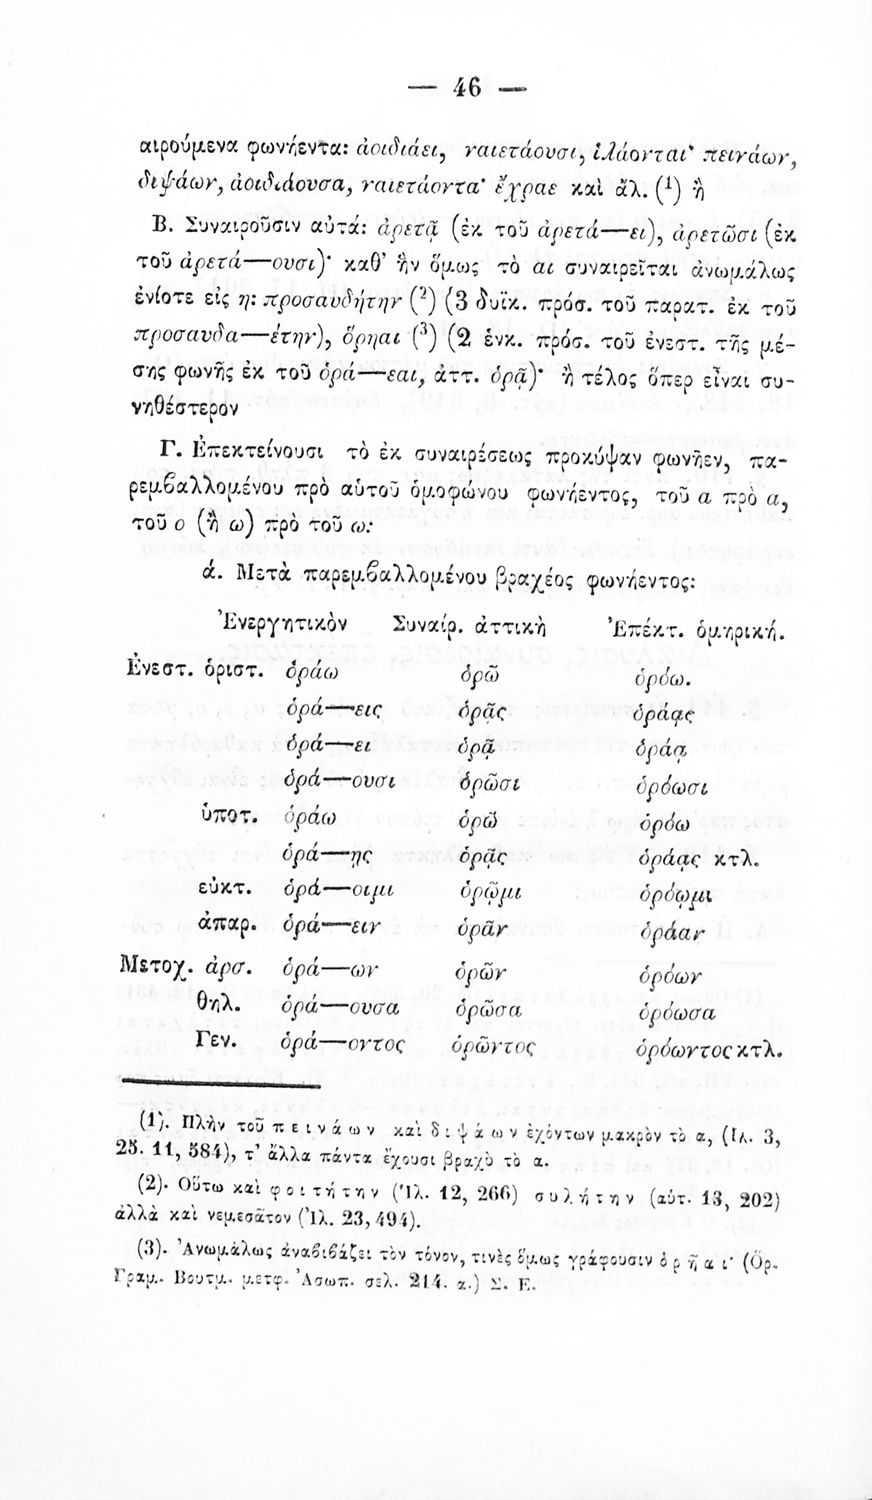 — 46 —
αιρούμενα φωνήεντα: ἀοιδιάει, ναιετάουσι, ἱλάονται· πεινάων,
διψάων, ἀοιδιάουσα, ναιετάοντα· ἔχραε καὶ ἄλ. (1) ἢ
Β. Συναιροῦσιν αὐτά: ἀρετᾷ (ἐκ τοῦ ἀρετά—ει), ἀρετῶσι (ἐκ
τοῦ ἀρετά—ουσι)· καθ’ ἣν ὅμως τὸ αι συναιρεῖται ἀνωμάλως
ἐνίοτε εἰς η: προσαυδήτην (2) (3 δυϊκ. πρόσ. τοῦ παρατ. ἐκ τοῦ
προσαυδα—έτην), ὅρηαι (3) (2 ἑνκ. πρόσ. τοῦ ἐνεστ. τῆς μέ-
σης φωνῆς ἐκ τοῦ ὁρά—εαι, ἀττ. ὁρᾷ)· ἢ τέλος ὅπερ εἶναι συ-
νηθέστερον
Γ. Ἐπεκτείνουσι τὸ ἐκ συναιρέσεως προκύψαν φωνῆεν, πα-
ρεμβαλλομένου πρὸ αὐτοῦ ὁμοφώνου φωνήεντος, τοῦ α πρὸ α,
τοῦ ο (ἢ ω) πρὸ τοῦ ω:
ά. Μετὰ παρεμβαλλομένου βραχέος φωνήεντος:
Ἐνεργητικὸν Συναίρ. ἀττικὴ Ἐπέκτ. ὁμηρική.
Ἐνεστ. ὁριστ. ὁράω ὁρῶ ὁρόω.
ὁρά—εις ὁρᾷς ὁράᾳς
ὁρά—ει ὁρᾷ ὁράᾳ
ὁρά—ουσι ὁρῶσι ὁρόωσι
ὑποτ. ὁράω ὁρῶ ὁρόω
ὁρά—ῃς ὁρᾷς ὁράᾳς κτλ.
εὐκτ. ὁρά—οιμι ὁρῷμι ὁρόῳμι
ἀπαρ. ὁρά—ειν ὁρᾶν ὁράαν
Μετοχ. ἀρσ. ὁρά—ων ὁρῶν ὁρόων
θηλ. ὁρά—ουσα ὁρῶσα ὁρόωσα
Γεν. ὁρά—οντος ὁρῶντος ὁρόωντος κτλ.
(1). Πλὴν τοῦ πεινάων καὶ διψάων ἐχόντων μακρὸν τὸ α, (Ιλ. 3,
25. 11, 584), τ’ ἄλλα πάντα ἔχουσι βραχὺ τὸ α.
(2). Οὕτω καὶ φοιτήτην (Ἰλ. 12, 266) συλήτην (αὐτ. 13, 202)
ἀλλὰ καὶ νεμεσᾶτον (Ἰλ. 23,494).
(3). Ἀνωμάλως ἀναβιβάζει τὸν τόνον, τινὲς ὅμως γράφουσιν ὁρῆαι· (Ὅρ.
Γραμ. Βουτμ. μετφ. Ἀσωπ. σελ. 214. α.) Σ. Ε.